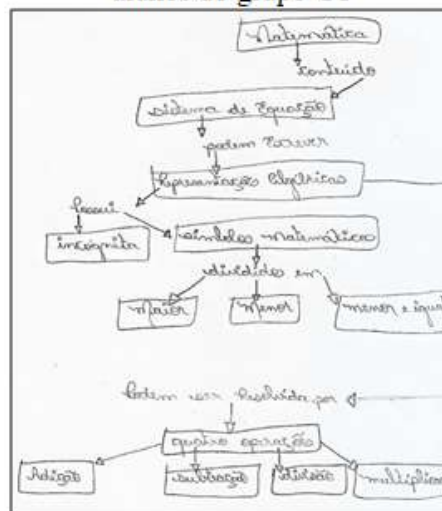 Matemática
conteúdo
Sistema de Equação
podem Escrever
Representações Algébricas
Possui
incógnita
símbolos matemáticos
divididos em
Maior
Menor
menor e igual
Podem ser Resolvida por
quatro operações
Adição
subtração
divisão
multiplica